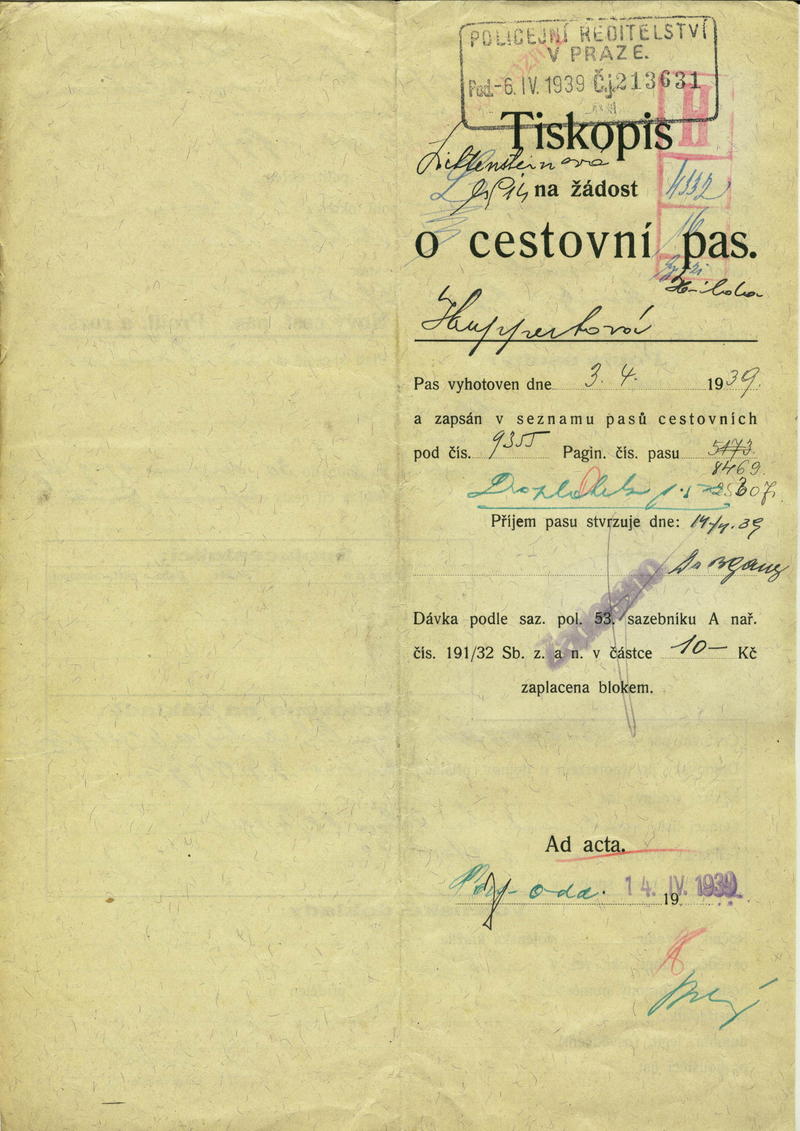 POLICEJNÍ ŘEDITELSTVÍ
V PRAZE.
Pod. -6. IV. 1939 Čj. 213631
H
Tiskopis
na žádost
4332
16
o cestovní pas.
Huppertová
Pas vyhotoven dne 3. 4. 1939.
a zapsán v seznamu pasů cestovních
pod čís. 9355 Pagin. čís. pasu 5173.
8469.
Doplatek
Příjem pasu stvrzuje dne: 14/4.39
Dávka podle saz. pol. 53. sazebníku A nař.
čís. 191/32 Sb. z. a n. v částce 10— Kč
zaplacena blokem.
Ad acta.
14. IV. 1939
19